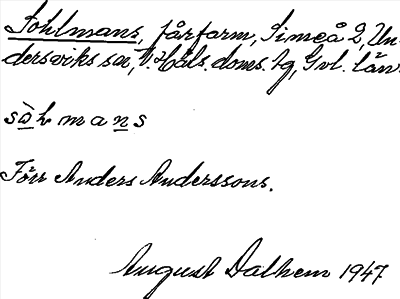 Sohlmans, fårfarm, Simeå 2, Un-
dersviks sn, V. Häls. doms. hg, Gvl. län.
sòhmans
Förr Anders Anderssons.
August Dalhem 1947